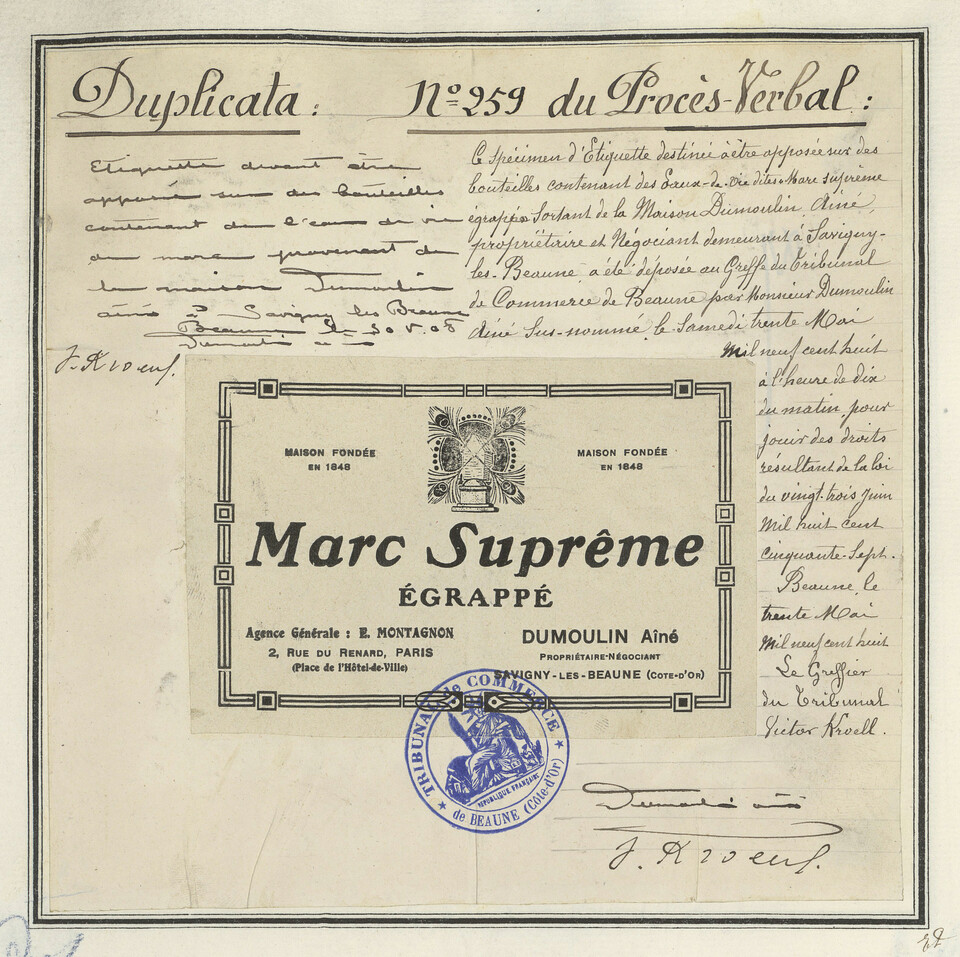 Duplicata :
Nº 259 du Procès-Verbal :
Etiquette devant être
apposée sur des bouteilles
contenant de l'eau de vie
de marc provenant de
la maison Dumoulin
ainé à Savigny les Beaune
Beaune le 30 V. 08
Dumoulin ainé
Ce spécimen d'Etiquette destinée à être apposée sur des
bouteilles contenant des Eaux-de-vie dites "Marc suprême
égrappé" sortant de la Maison Dumoulin Ainé,
propriétaire et Négociant demeurant à Savigny-
les-Beaune a été déposée au Greffe du Tribunal
de Commerce de Beaune par Monsieur Dumoulin
Ainé sus-nommé, le Samedi trente Mai
Mil neuf cent huit
à l'heure de dix
du matin, pour
jouir des droits
résultant de la loi
du vingt-trois Juin
Mil huit cent
cinquante-Sept.
Beaune, le
trente Mai
Mil neuf cent huit
Le Greffier
du Tribunal
Victor Kroell.
MAISON FONDÉE
EN 1848
MAISON FONDÉE
EN 1848
Marc Suprême
ÉGRAPPÉ
Agence Générale : E. MONTAGNON
2, RUE DU RENARD, PARIS
(Place de l'Hôtel-de-Ville)
DUMOULIN Aîné
PROPRIÉTAIRE-NÉGOCIANT
SAVIGNY-LES-BEAUNE (COTE-D'OR)
TRIBUNAL de COMMERCE
RÉPUBLIQUE FRANÇAISE
de BEAUNE (Côte-d'Or)
Dumoulin ainé